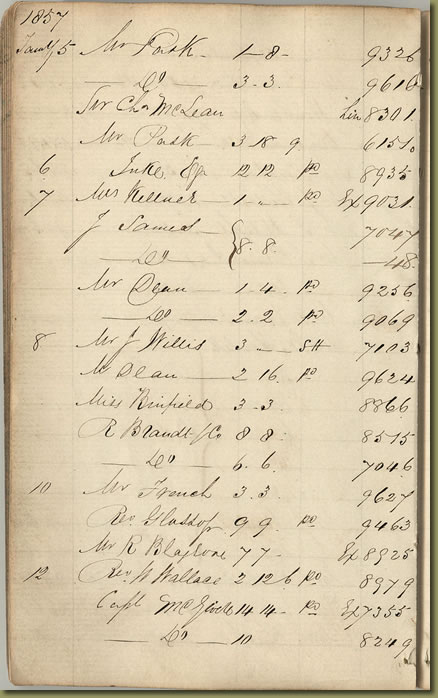 1857
Jany 5 Mr Pask 1-8- 9326
— Do — 3.3. 9616
Sir Chas McLean Lin 8301
Mr Pask 3 18 9 6151
6 Luke Esq 12 12 pd 8935
7 Mrs Kellner 1 " - pd Ex 9031
J Samels 7047
— Do — { 8.8. — 48
Mr Dean 1-4- pd 9256
— Do — 2.2 pd 9069
8 Mr J Willis 3 — SH 7103
Mr Dean 2 16. pd 9624
Miss Binfield 3-3. 8866
R Brandt & Co 8 8. 8515
— Do 6.6. 7046
10 Mr French 3.3. 9627
Rev. Glossop 9 9. pd 9463
Mr R 7 7 - Ex 8525
12 Rev W Wallace 2 12 6 pd 8979
Capt 14 14 - pd Ex 7355
— Do — 10 8249